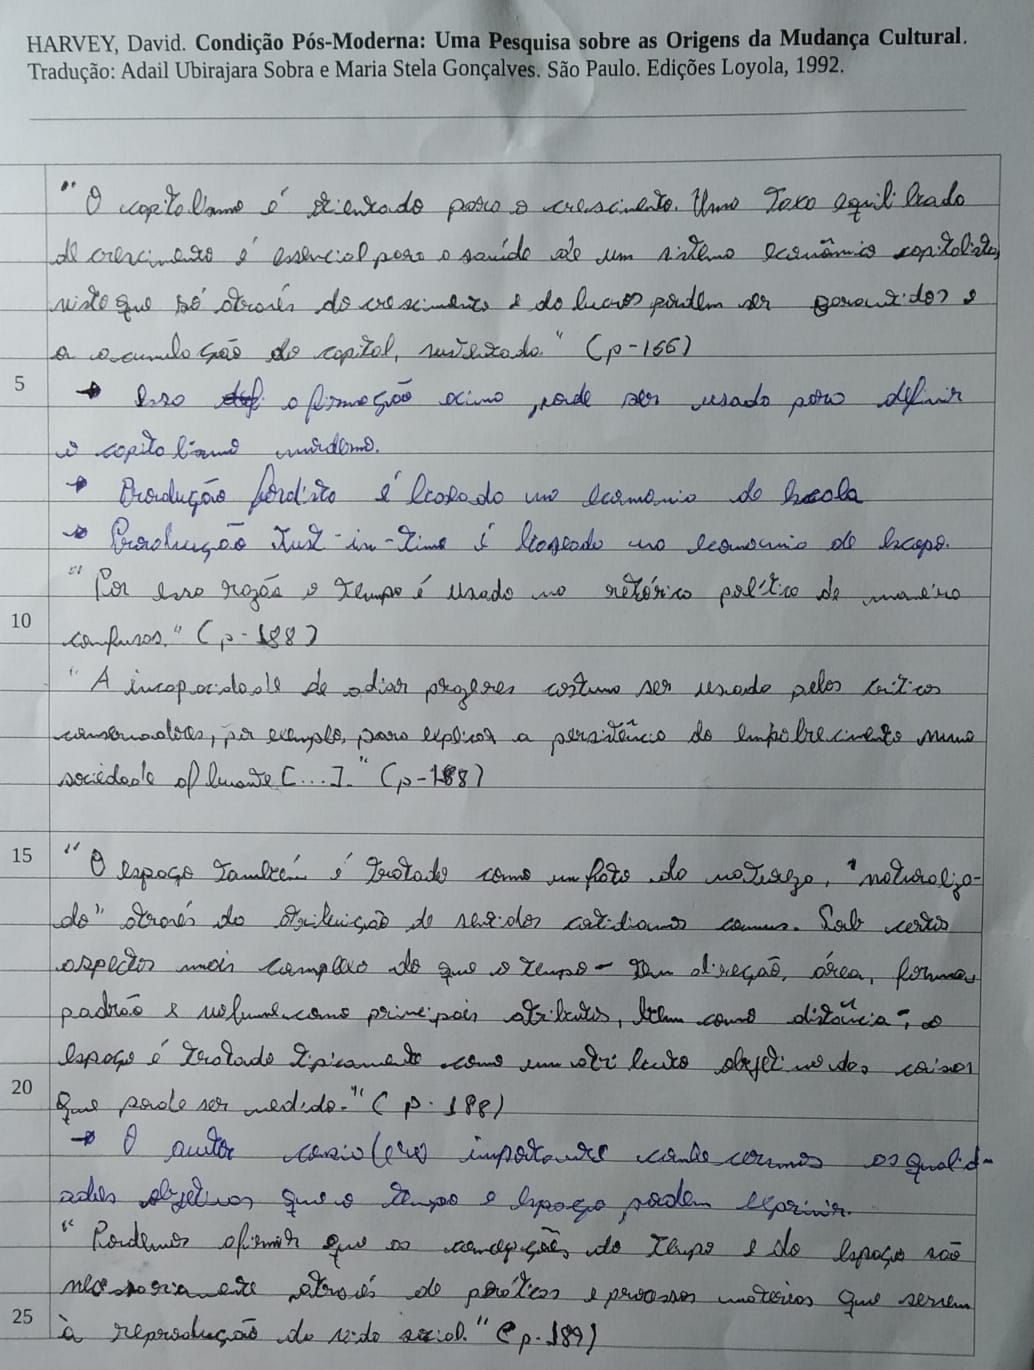 HARVEY, David. Condição Pós-Moderna: Uma Pesquisa sobre as Origens da Mudança Cultural.
Tradução: Adail Ubirajara Sobra e Maria Stela Gonçalves. São Paulo. Edições Loyola, 1992.
"O capitalismo é orientado para o crescimento. Uma taxa equilibrada
de crescimento é essencial para a saúde de um sistema econômico capitalista,
visto que só através do crescimento é do lucros podem ser garantidos e
a acumulação do capital, sustentado." (p-166)
5 → Isso a afirmação acima, pode ser usado para definir
o capitalismo moderno.
→ Produção fordista é baseado na economia de escala
→ Produção Just-in-Time é baseado na economia de escopo.
"Por essa razão o tempo é usado na retórica política de maneira
10 confusas." (p-188)
"A incapacidade de adiar prazeres costuma ser usado pelos críticos
conservadores, por exemplo, para explicar a persistência do empobrecimento numa
sociedade afluente [...]." (p-188)
15 "O espaço também é tratado como um fato da natureza, "naturaliza-
do" através da atribuição de sentidos cotidianos comuns. Sob certos
aspectos mais complexo do que o tempo - tem direção, área, forma,
padrão e volume como principais atributos, bem como distância; o
espaço é tratado tipicamente como um atributo objetivo das coisas
20 que pode ser medido." (p. 188)
→ O autor considera importante conhecermos as qualid-
ades objetivas que o tempo e espaço podem exprimir.
"Podemos afirmar que as concepções do tempo e do espaço são
necessariamente através de práticas e processos materiais que servem
25 à reprodução da vida social." (p. 189)